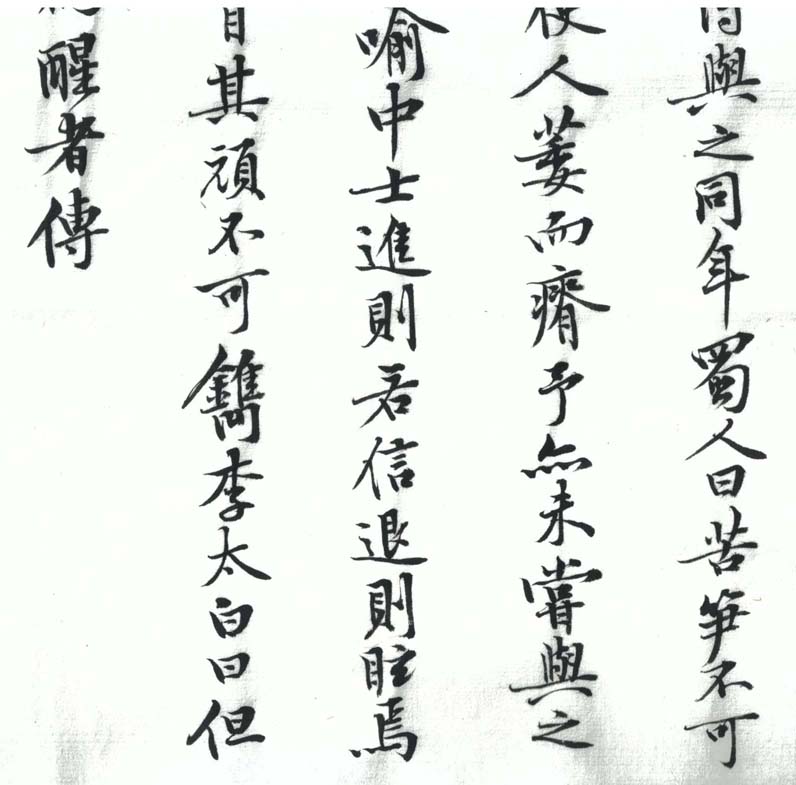 與之同年蜀人曰苦笋不可
使人萎而瘠予亦未嘗與之
喻中士進則若信退則眩焉
目其頑不可鐫李太白曰但
醒者傳